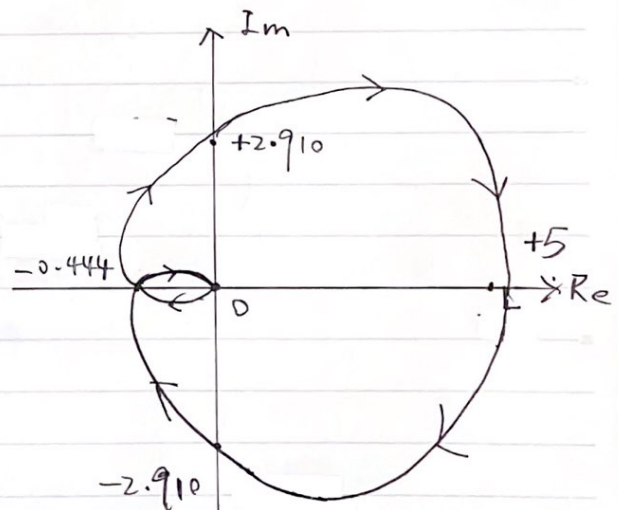 Im
+2.910
+5
-0.444
Re
0
-2.910